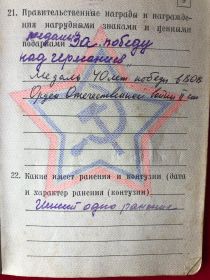 21. Правительственные награды и награжде-
ния нагрудными знаками и ценными
подарками За победу
над германией
Медаль 40 лет победы в ВОВ
Орден Отечественной войны II ст
22. Какие имеет ранения и контузии (дата
и характер ранения (контузии)
одно ранение